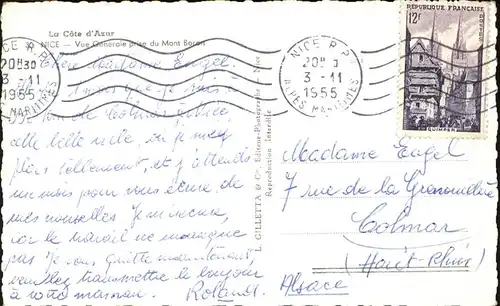 La Côte d'Azur
NICE — Vue Générale prise du Mont Boron
NICE R.P.
20H30
3 - 11
1955
ALPES MARITIMES
NICE R.P.
20H30
3 - 11
1955
ALPES MARITIMES
RÉPUBLIQUE FRANÇAISE
12F
QUIMPER
POSTES
Chère Madame Engel.
que je suis à
de Colmar à Nice,
cette belle ville, où je me
plais tellement, et j'attends
un mois pour vous écrire de
mes nouvelles. Je m'excuse,
car le travail ne manque
pas. Je vous quitte maintenant,
veuillez transmettre le bonjour
à votre maman. Rolland.
GILLETTA & Cie, Éditeurs-Photographes - Nice
Reproduction Interdite
Madame Engel
7 rue de la Grenouillère
Colmar
(Haut-Rhin)
Alsace